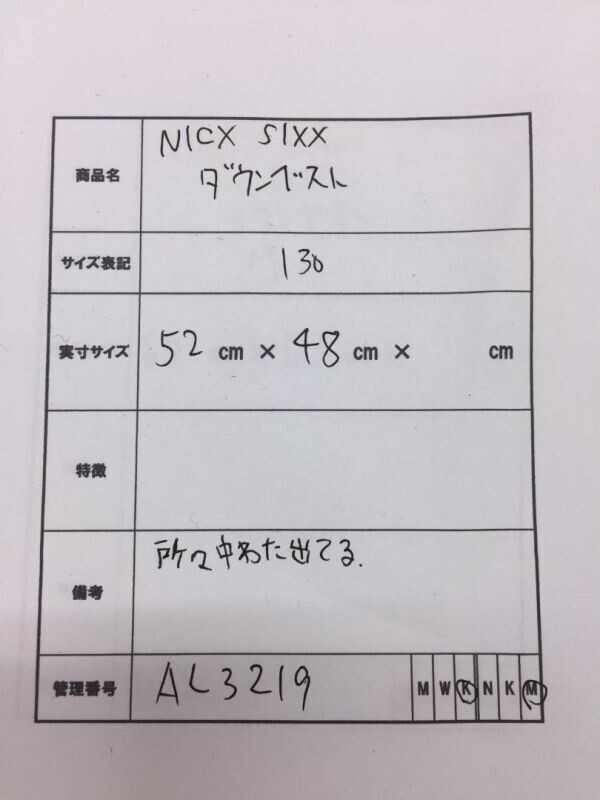 商品名 NICX SIXX
ダウンベスト
サイズ表記 130
実寸サイズ 52 cm × 48 cm × cm
特徴
備考 所々中わた出てる.
管理番号 AL3219 M W K N K M